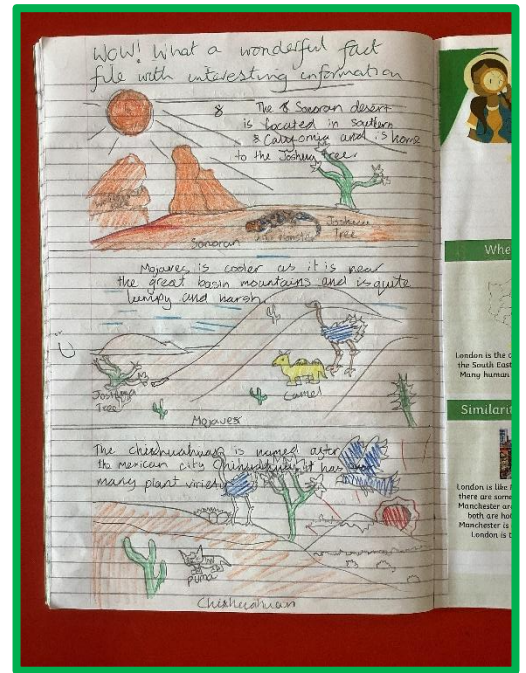 WOW! What a wonderful fact
file with interesting information
8 The 8 Sonoran desert
is located in southern
& Caligomia and is home
to the Joshua tree.
Joshua
Tree
Gila Monster
Sonoran
Mojaves is cooler as it is near
the great basin mountains and is quite
lumpy and harsh
Joshua
Tree
Camel
Mojaves
The chiehuahuas is named after
the mexican city it has
many plant
Puma
Chiehuahuan
Whe
London is the c
the South East
Many human
Similarit
London is like
there are some
Manchester ar
both are hot
Manchester is
London is t